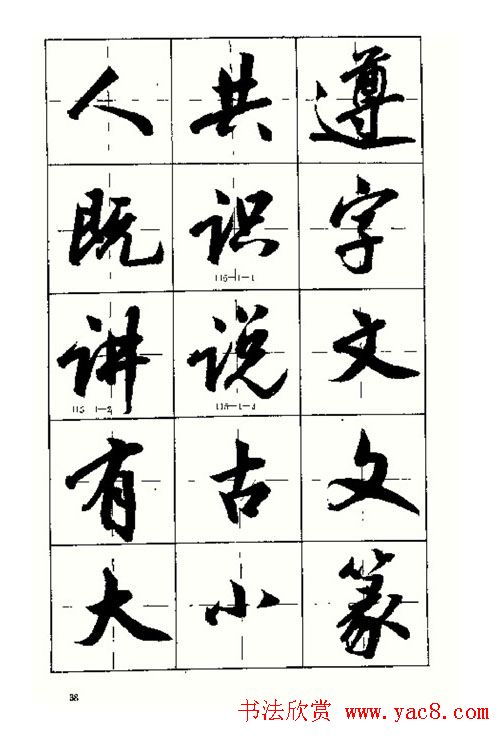 人共遵
既识字
讲说文
有古文
大小篆
38
书法欣赏 www.yac8.com